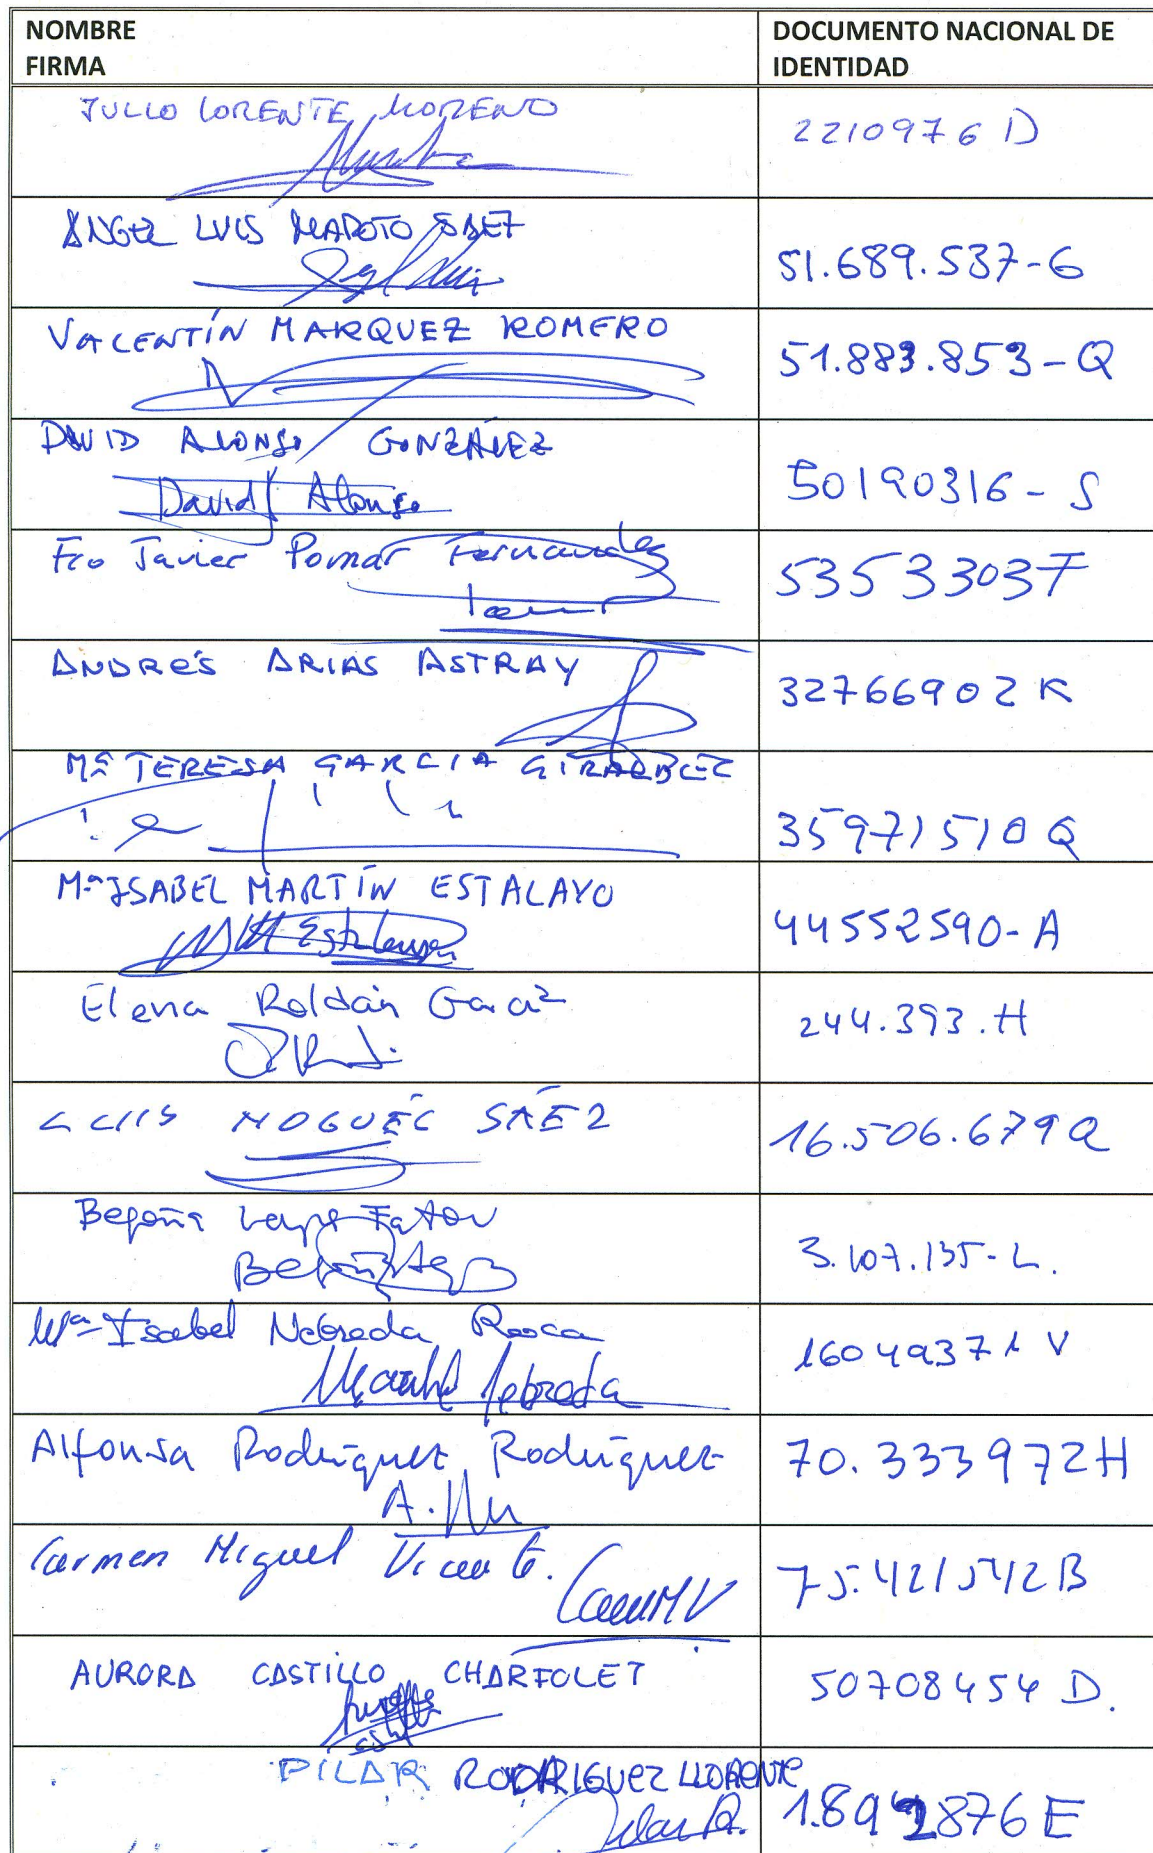 NOMBRE
FIRMA
DOCUMENTO NACIONAL DE
IDENTIDAD
JULIO LORENTE MORENO
2210976 D
ÁNGEL LUIS MAROTO SAEZ
51.689.537-G
VALENTÍN MARQUEZ ROMERO
51.883.853-Q
DAVID ALONSO GONZÁLEZ
David Alonso
50190316-S
Fco Javier Pomar Fernandez
53533037F
ANDRÉS ARIAS ASTRAY
32766902K
Mª TERESA GARCIA
35971510Q
Mª ISABEL MARTÍN ESTALAYO
44552590-A
Elena Roldán García
244.393.H
LUIS NOGUÉS SÁEZ
16.506.679Q
Begoña
3.107.135-L.
Mª Isabel Nebreda Roca
Nebreda
16049371 V
Alfonsa Rodríguez Rodríguez
70.333972H
Carmen Miguel Vicente.
75.421542B
AURORA CASTILLO CHARFOLET
50708454 D.
PILAR RODRIGUEZ LLORENTE
Pilar R.
876 E